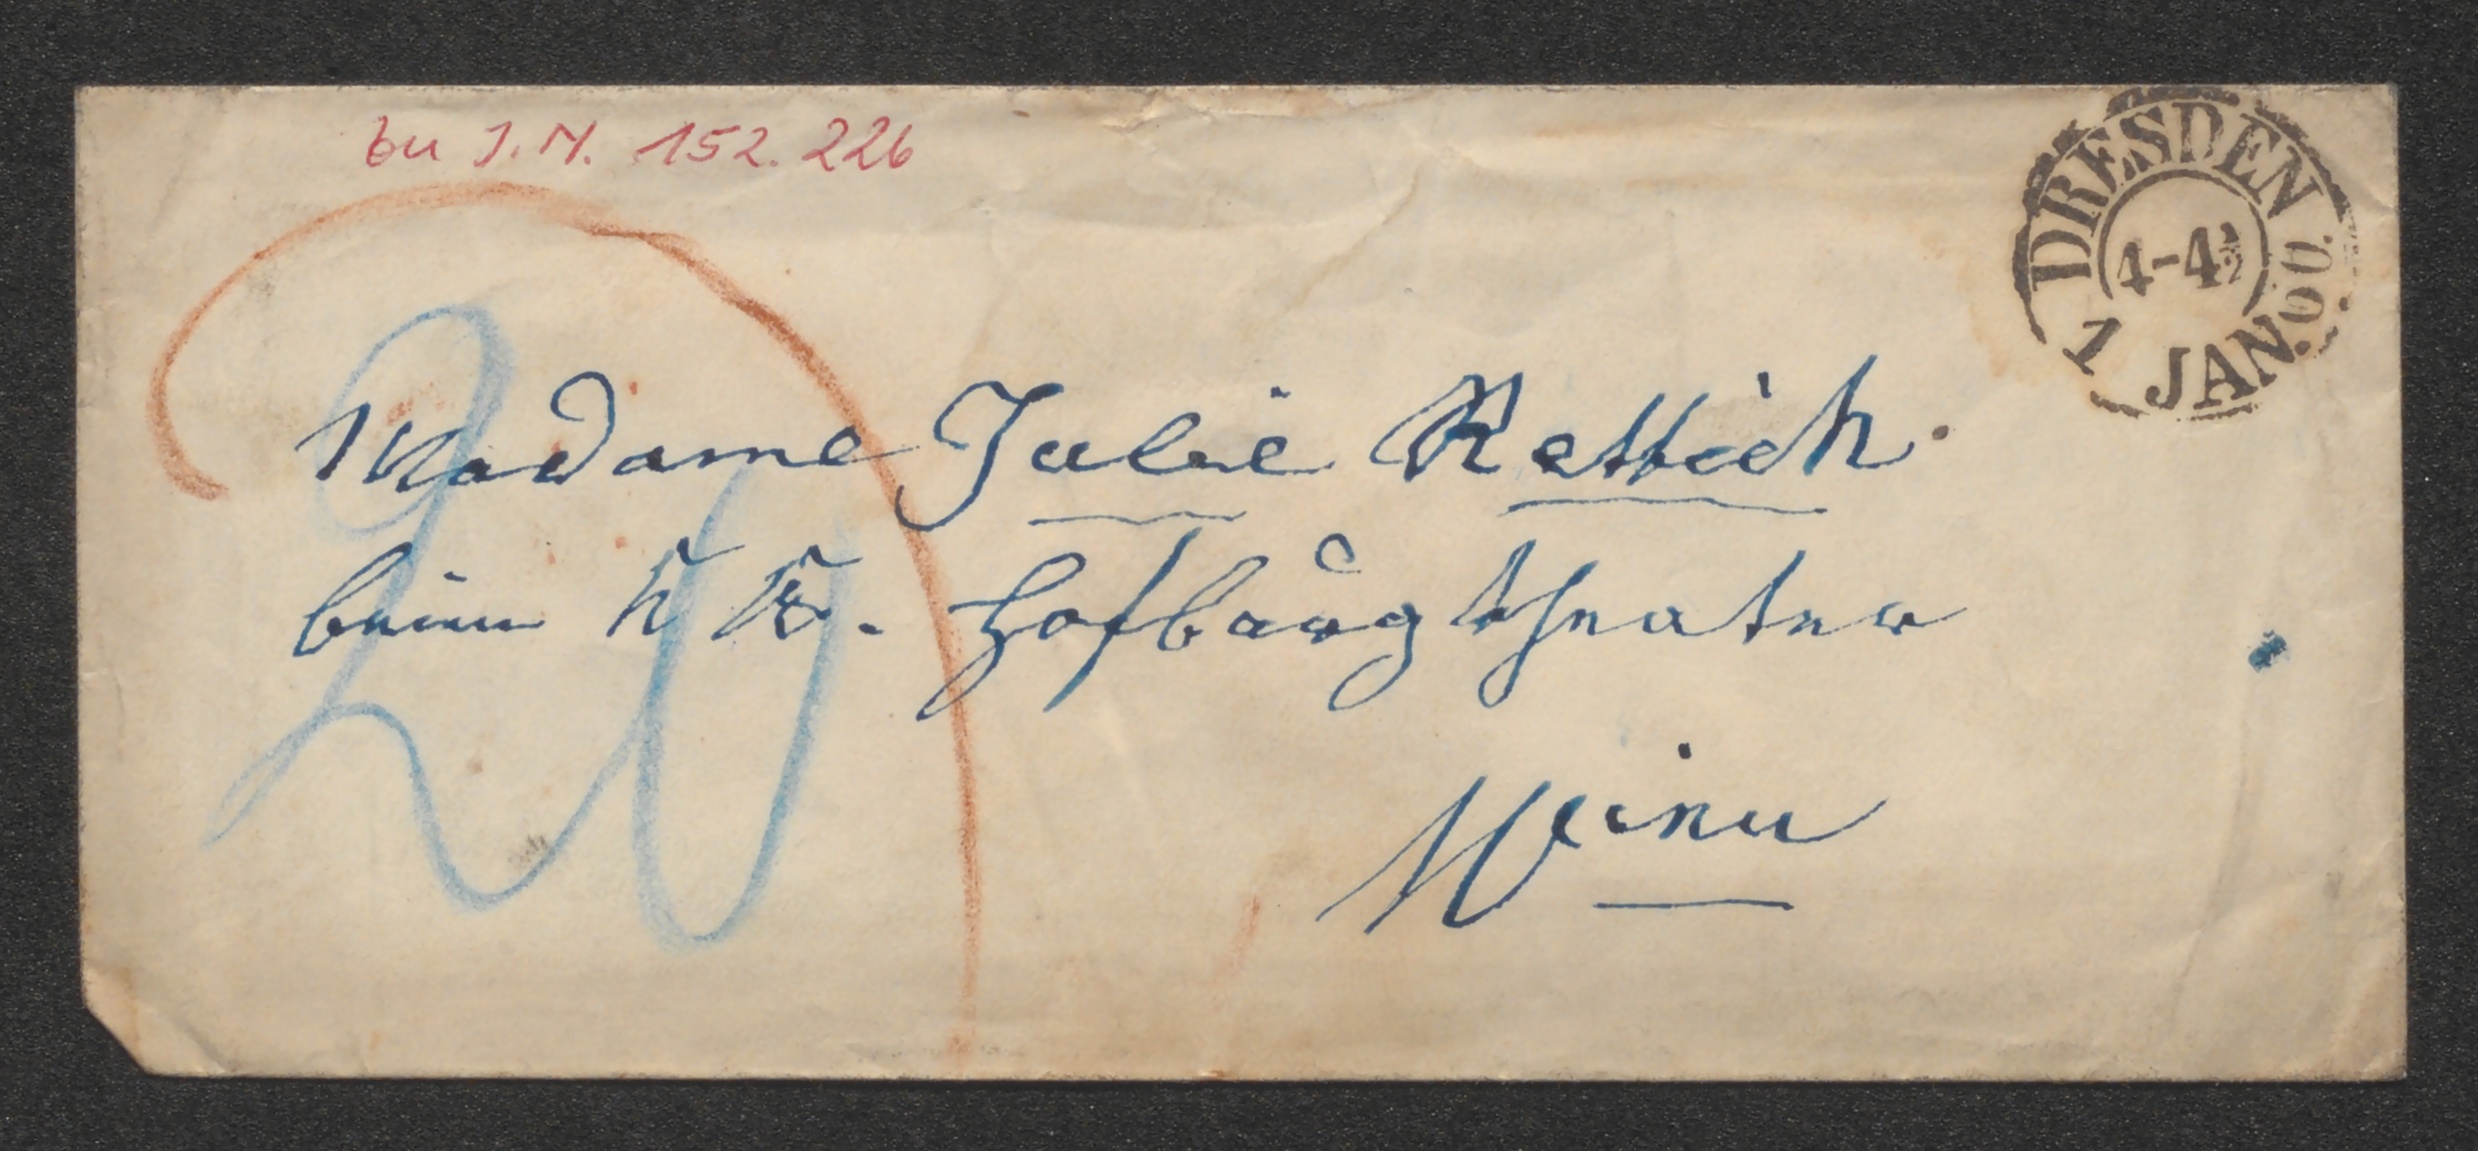 bei I.N. 152.226
DRESDEN
4-4½
1 JAN. 60
Madame Julie Rettich.
beim K K. Hofburgtheater
Wien
20